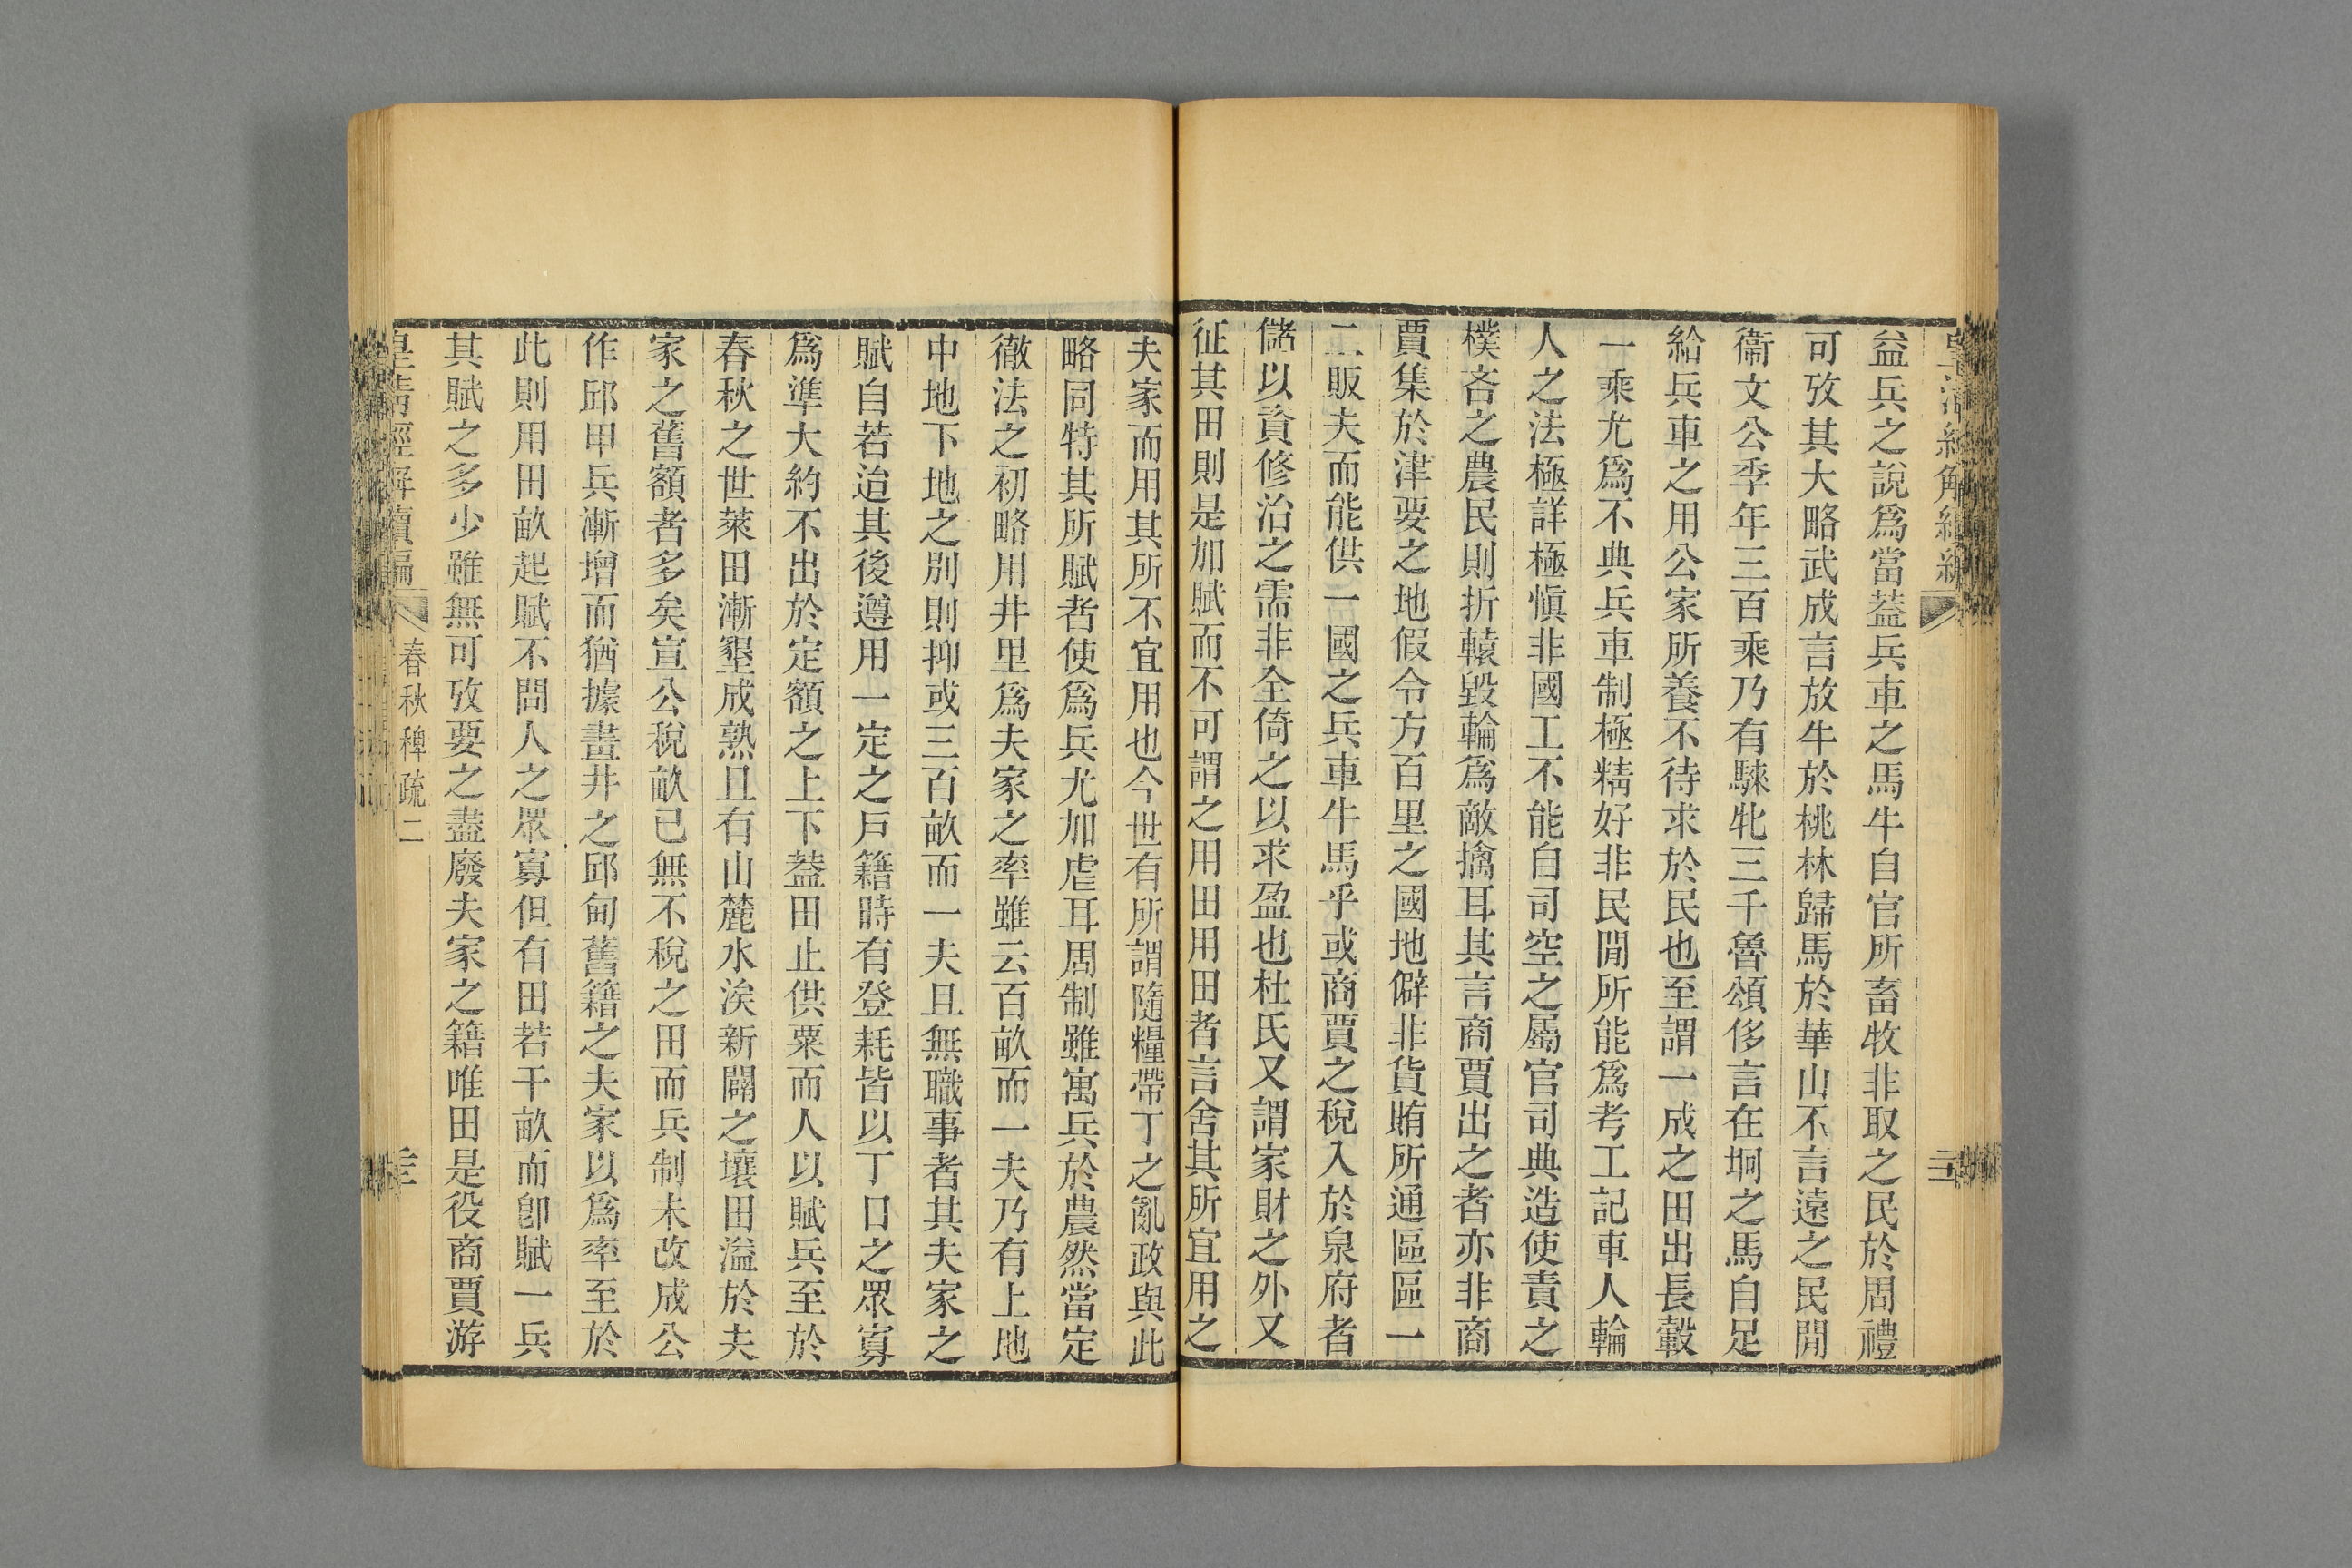 益兵之說爲當葢兵車之馬牛自官所畜牧非取之民於周禮
可攷其大略武成言放牛於桃林歸馬於華山不言遠之民閒
衞文公季年三百乘乃有騋牝三千魯頌侈言在坰之馬自足
給兵車之用公家所養不待求於民也至謂一成之田出長轂
一乘尤爲不典兵車制極精好非民閒所能爲考工記車人輪
人之法極詳極愼非國工不能自司空之屬官司典造使責之
樸吝之農民則折轅毀輪爲敵擒耳其言商賈出之者亦非商
賈集於津要之地假令方百里之國地僻非貨賄所通區區一
二販夫而能供一國之兵車牛馬乎或商賈之稅入於泉府者
儲以資修治之需非全倚之以求盈也杜氏又謂家財之外又
征其田則是加賦而不可謂之用田用田者言舍其所宜用之
夫家而用其所不宜用也今世有所謂隨糧帶丁之亂政與此
略同特其所賦者使爲兵尤加虐耳周制雖寓兵於農然當定
徹法之初略用井里爲夫家之率雖云百畝而一夫乃有上地
中地下地之別則抑或三百畝而一夫且無職事者其夫家之
賦自若迨其後遵用一定之戶籍時有登耗皆以丁口之眾寡
爲準大約不出於定額之上下葢田止供粟而人以賦兵至於
春秋之世萊田漸墾成熟且有山麓水涘新闢之壤田溢於夫
家之舊額者多矣宣公稅畝已無不稅之田而兵制未改成公
作邱甲兵漸增而猶據畫井之邱甸舊籍之夫家以爲率至於
此則用田畝起賦不問人之眾寡但有田若干畝而卽賦一兵
其賦之多少雖無可攷要之盡廢夫家之籍唯田是役商賈游
皇清經解續編 春秋稗疏二